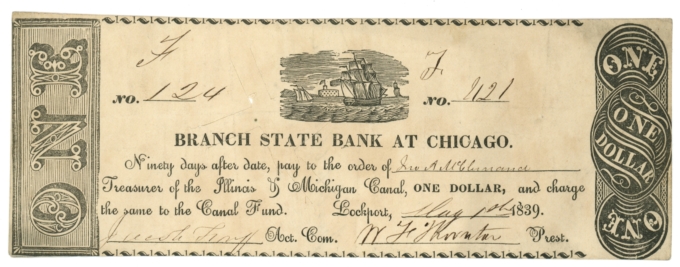 ONE
F F
No. 124 No. 1121
BRANCH STATE BANK AT CHICAGO.
Ninety days after date, pay to the order of Jno A McClernand
Treasurer of the Illinois & Michigan Canal, ONE DOLLAR, and charge
the same to the Canal Fund. Lockport, May 1st 1839.
Jacob Fry Act. Com. W F Thornton Prest.
ONE
ONE DOLLAR
ONE